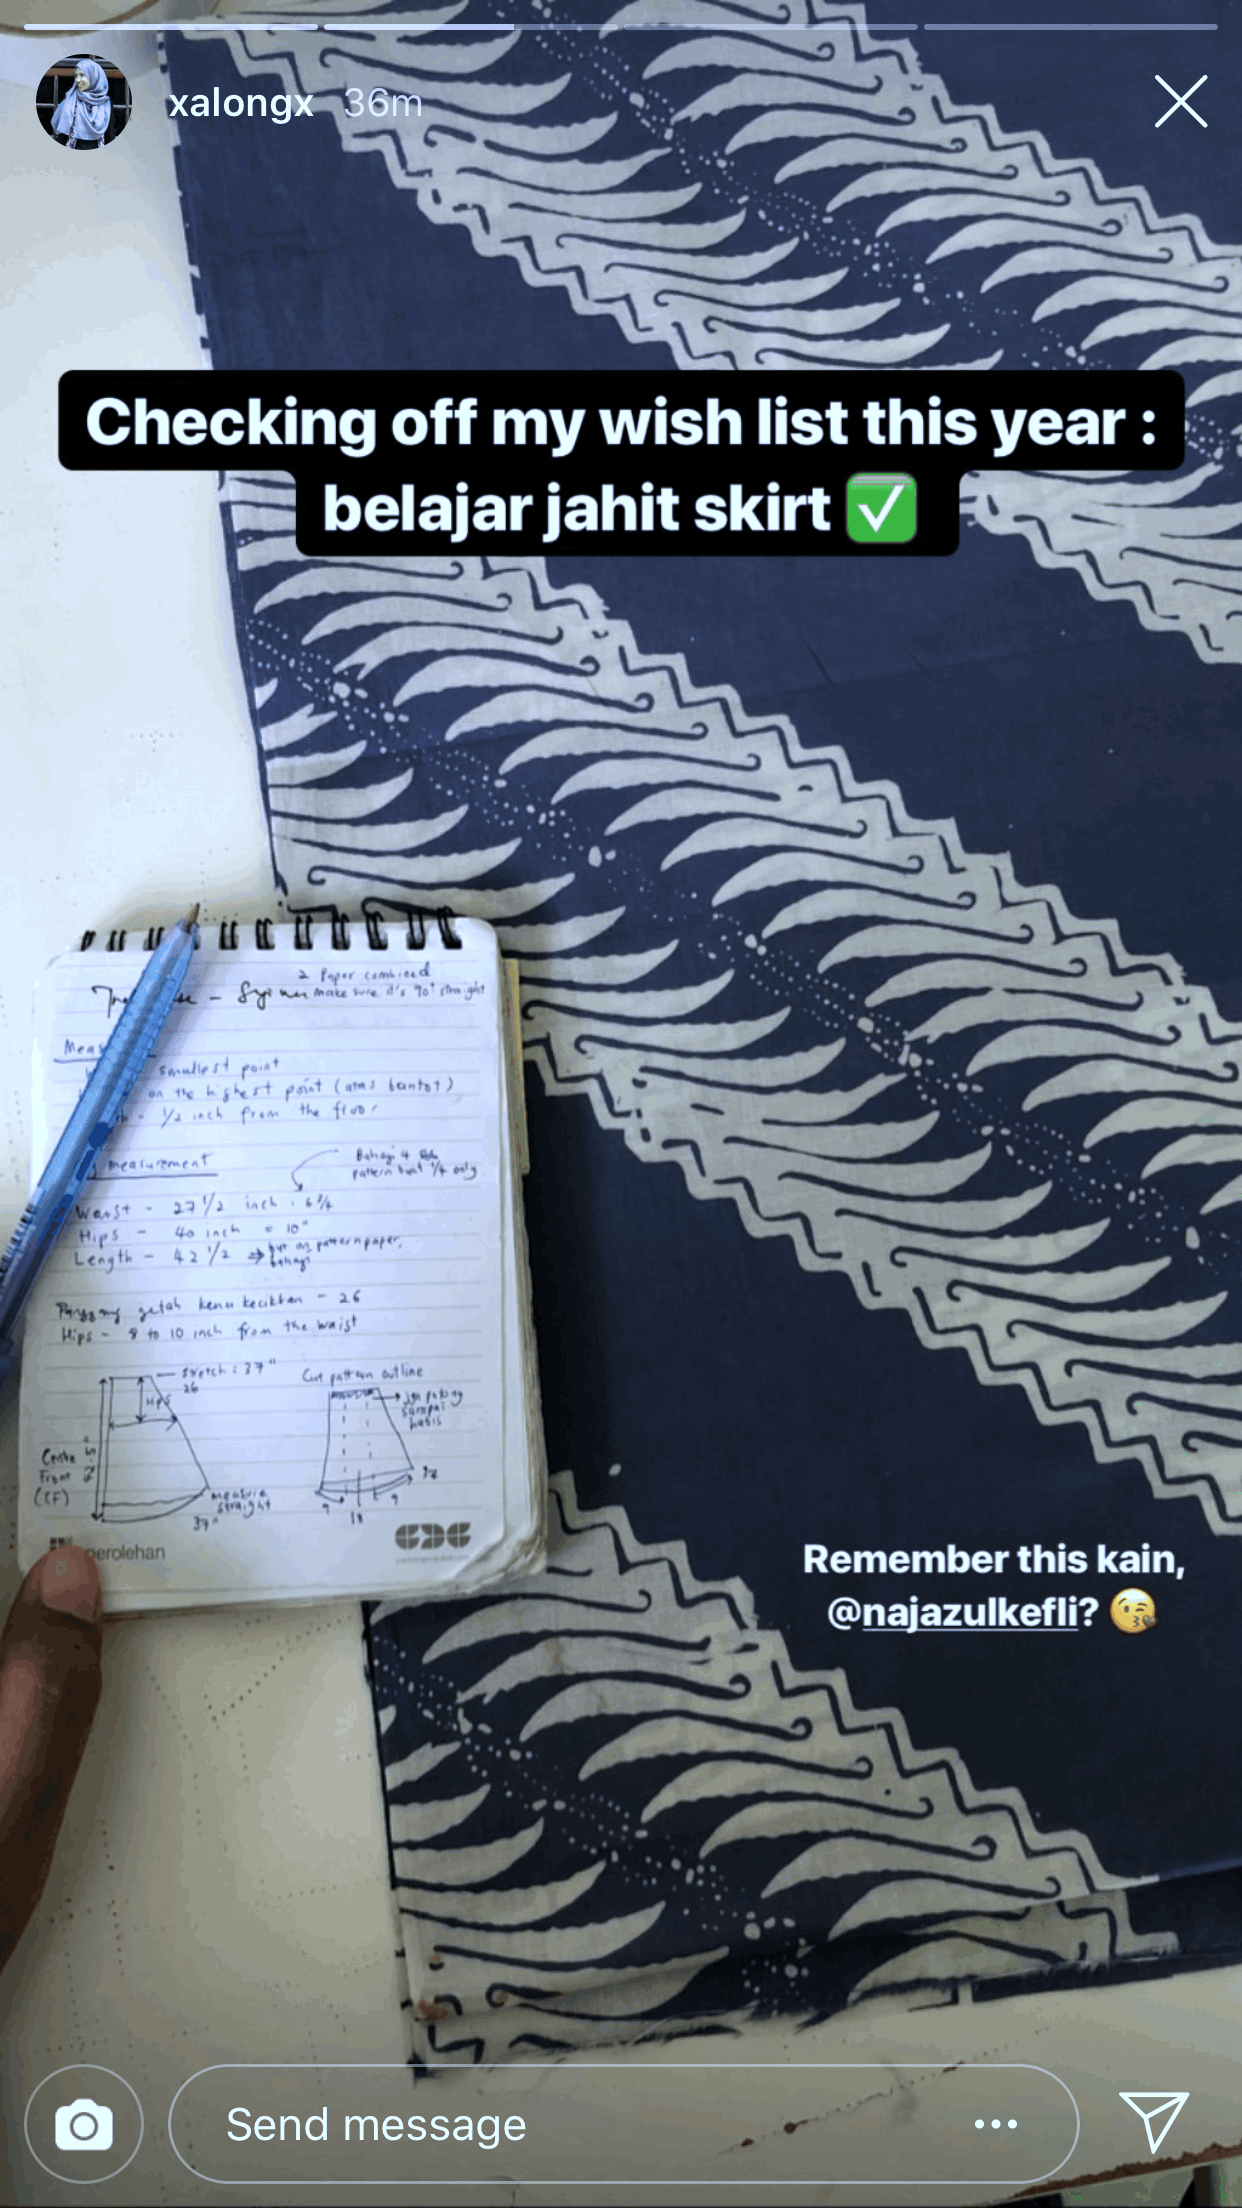 xalongx 36m
Checking off my wish list this year :
belajar jahit skirt ✅
2 Paper combined
make sure it's 90° straight
smallest point
on the highest point (atas bontot)
1/2 inch from the floor
measurement
Bahagi 4
pattern buat 1/4 only
Waist - 27 1/2 inch : 6 3/4
Hips - 40 inch = 10"
Length - 42 1/2 → but on pattern paper,
bahagi
Panjang getah kena kecilkan - 26
Hips - 8 to 10 inch from the waist
stretch : 37"
26
Hips
Centre
Front
(CF)
measure
straight
37"
Cut pattern outline
jgn potong
sampai
habis
9
18
9
perolehan
CDC
Remember this kain,
@najazulkefli? 😘
Send message